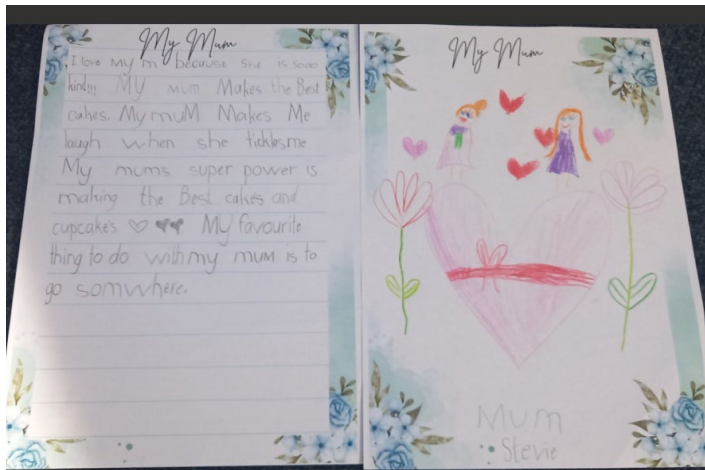 My Mum
I love My m because she is sooo
kind!!! My mum Makes the Best
cakes. My muM Makes Me
laugh when she ticklesme
My mums super power is
making the Best cakes and
cupcakes ♡ ♥♥ My favourite
thing to do with my mum is to
go somwhere.
My Mum
Mum
Stevie